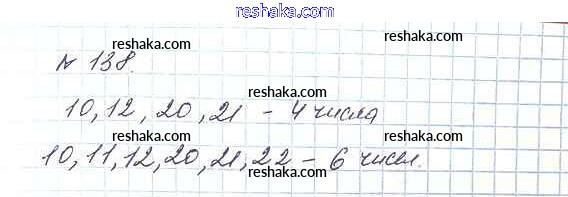 reshaka.com
reshaka.com
№ 138.
reshaka.com
10, 12, 20, 21 - 4 числа
reshaka.com reshaka.com
10, 11, 12, 20, 21, 22 - 6 чисел.
reshaka.com